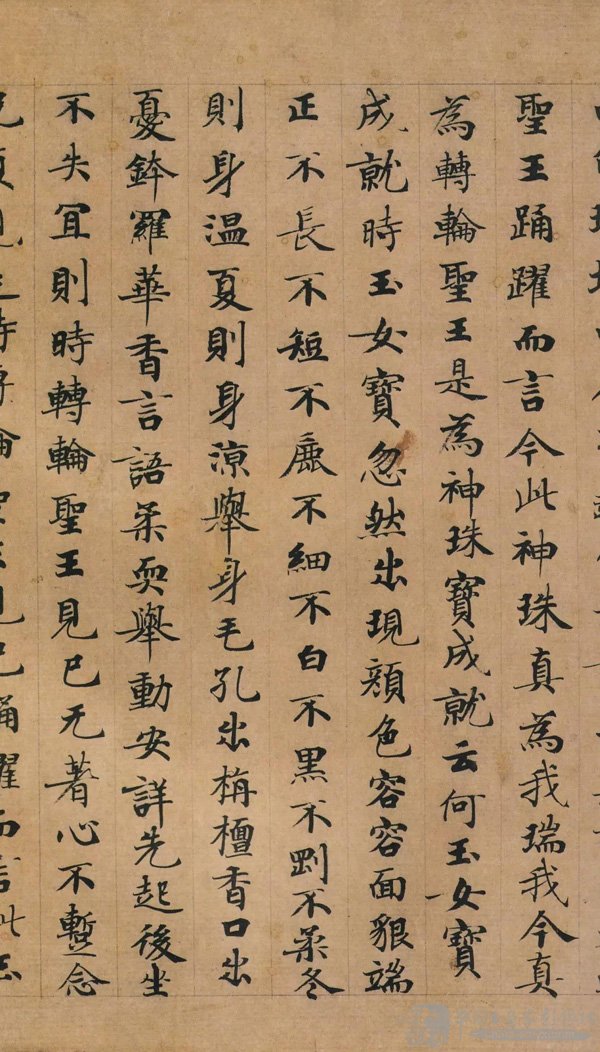 聖王踊躍而言今此神珠真為我瑞我今真
為轉輪聖王是為神珠寶成就云何玉女寶
成就時玉女寶忽然出現顏色容容面貌端
正不長不短不麁不細不白不黑不剛不柔冬
則身溫夏則身涼舉身毛孔出栴檀香口出
憂鉢羅華香言語柔耎舉動安詳先起後坐
不失宜則時轉輪聖王見已无著心不暫念
時轉輪聖王見已踊躍而言此